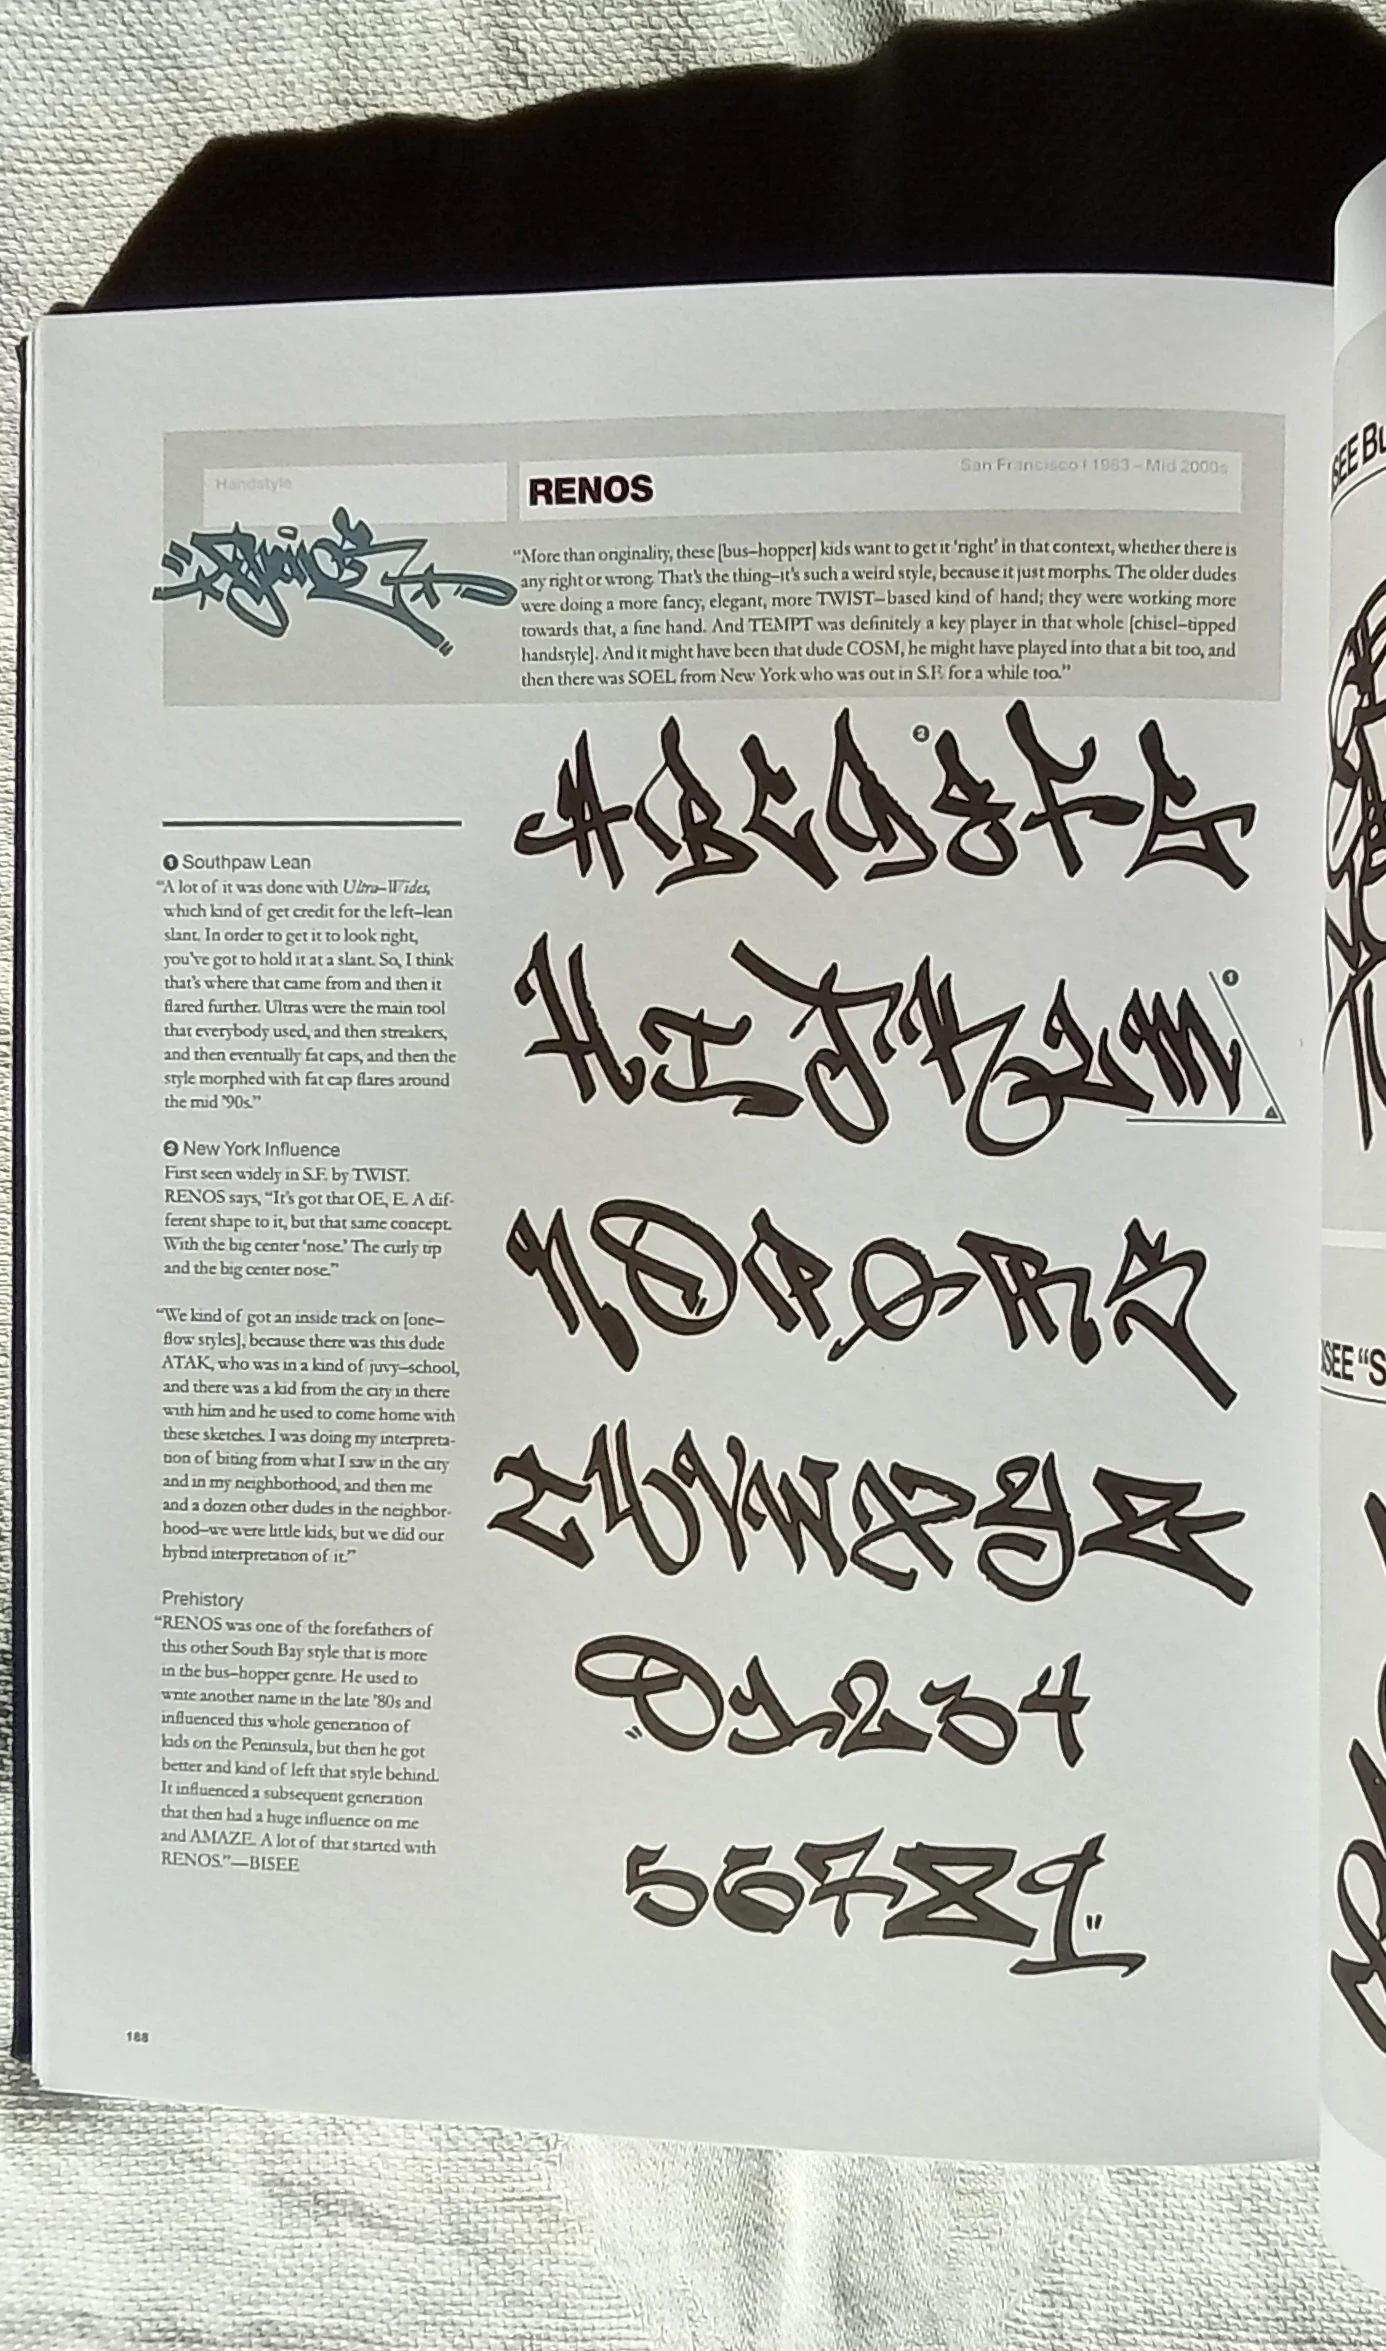 Handstyle
RENOS
San Francisco | 1983 – Mid 2000s
“More than originality, these [bus–hopper] kids want to get it ‘right’ in that context, whether there is
any right or wrong. That’s the thing–it’s such a weird style, because it just morphs. The older dudes
were doing a more fancy, elegant, more TWIST–based kind of hand; they were working more
towards that, a fine hand. And TEMPT was definitely a key player in that whole [chisel–tipped
handstyle]. And it might have been that dude COSM, he might have played into that a bit too, and
then there was SOEL from New York who was out in S.F. for a while too.”
❶ Southpaw Lean
“A lot of it was done with Ultra–Wides,
which kind of get credit for the left–lean
slant. In order to get it to look right,
you’ve got to hold it at a slant. So, I think
that’s where that came from and then it
flared further. Ultras were the main tool
that everybody used, and then streakers,
and then eventually fat caps, and then the
style morphed with fat cap flares around
the mid ’90s.”
❷ New York Influence
First seen widely in S.F. by TWIST.
RENOS says, “It’s got that OE, E. A dif-
ferent shape to it, but that same concept.
With the big center ‘nose.’ The curly up
and the big center nose.”
“We kind of got an inside track on [one–
flow styles], because there was this dude
ATAK, who was in a kind of juvy–school,
and there was a kid from the city in there
with him and he used to come home with
these sketches. I was doing my interpreta-
tion of biting from what I saw in the city
and in my neighborhood, and then me
and a dozen other dudes in the neighbor-
hood–we were little kids, but we did our
hybrid interpretation of it.”
Prehistory
“RENOS was one of the forefathers of
this other South Bay style that is more
in the bus–hopper genre. He used to
write another name in the late ’80s and
influenced this whole generation of
kids on the Peninsula, but then he got
better and kind of left that style behind.
It influenced a subsequent generation
that then had a huge influence on me
and AMAZE. A lot of that started with
RENOS.”—BISEE
❷
A B C D E F G
❶
H I J K L M
N O P Q R S
T U V W X Y Z
0 1 2 3 4
5 6 7 8 9
188